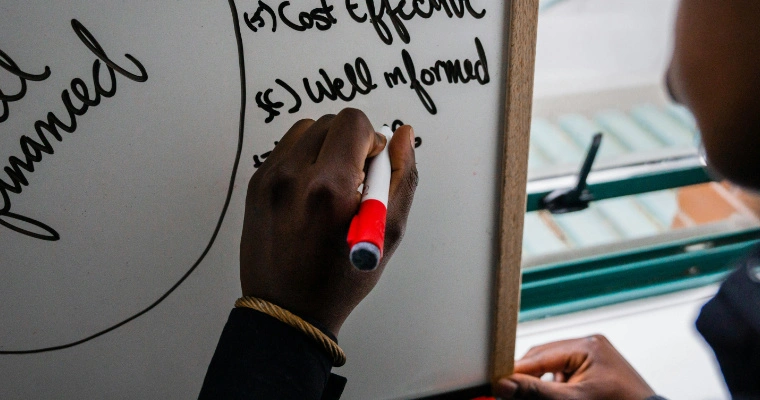 (5) Cost Effective
Well informed
financed